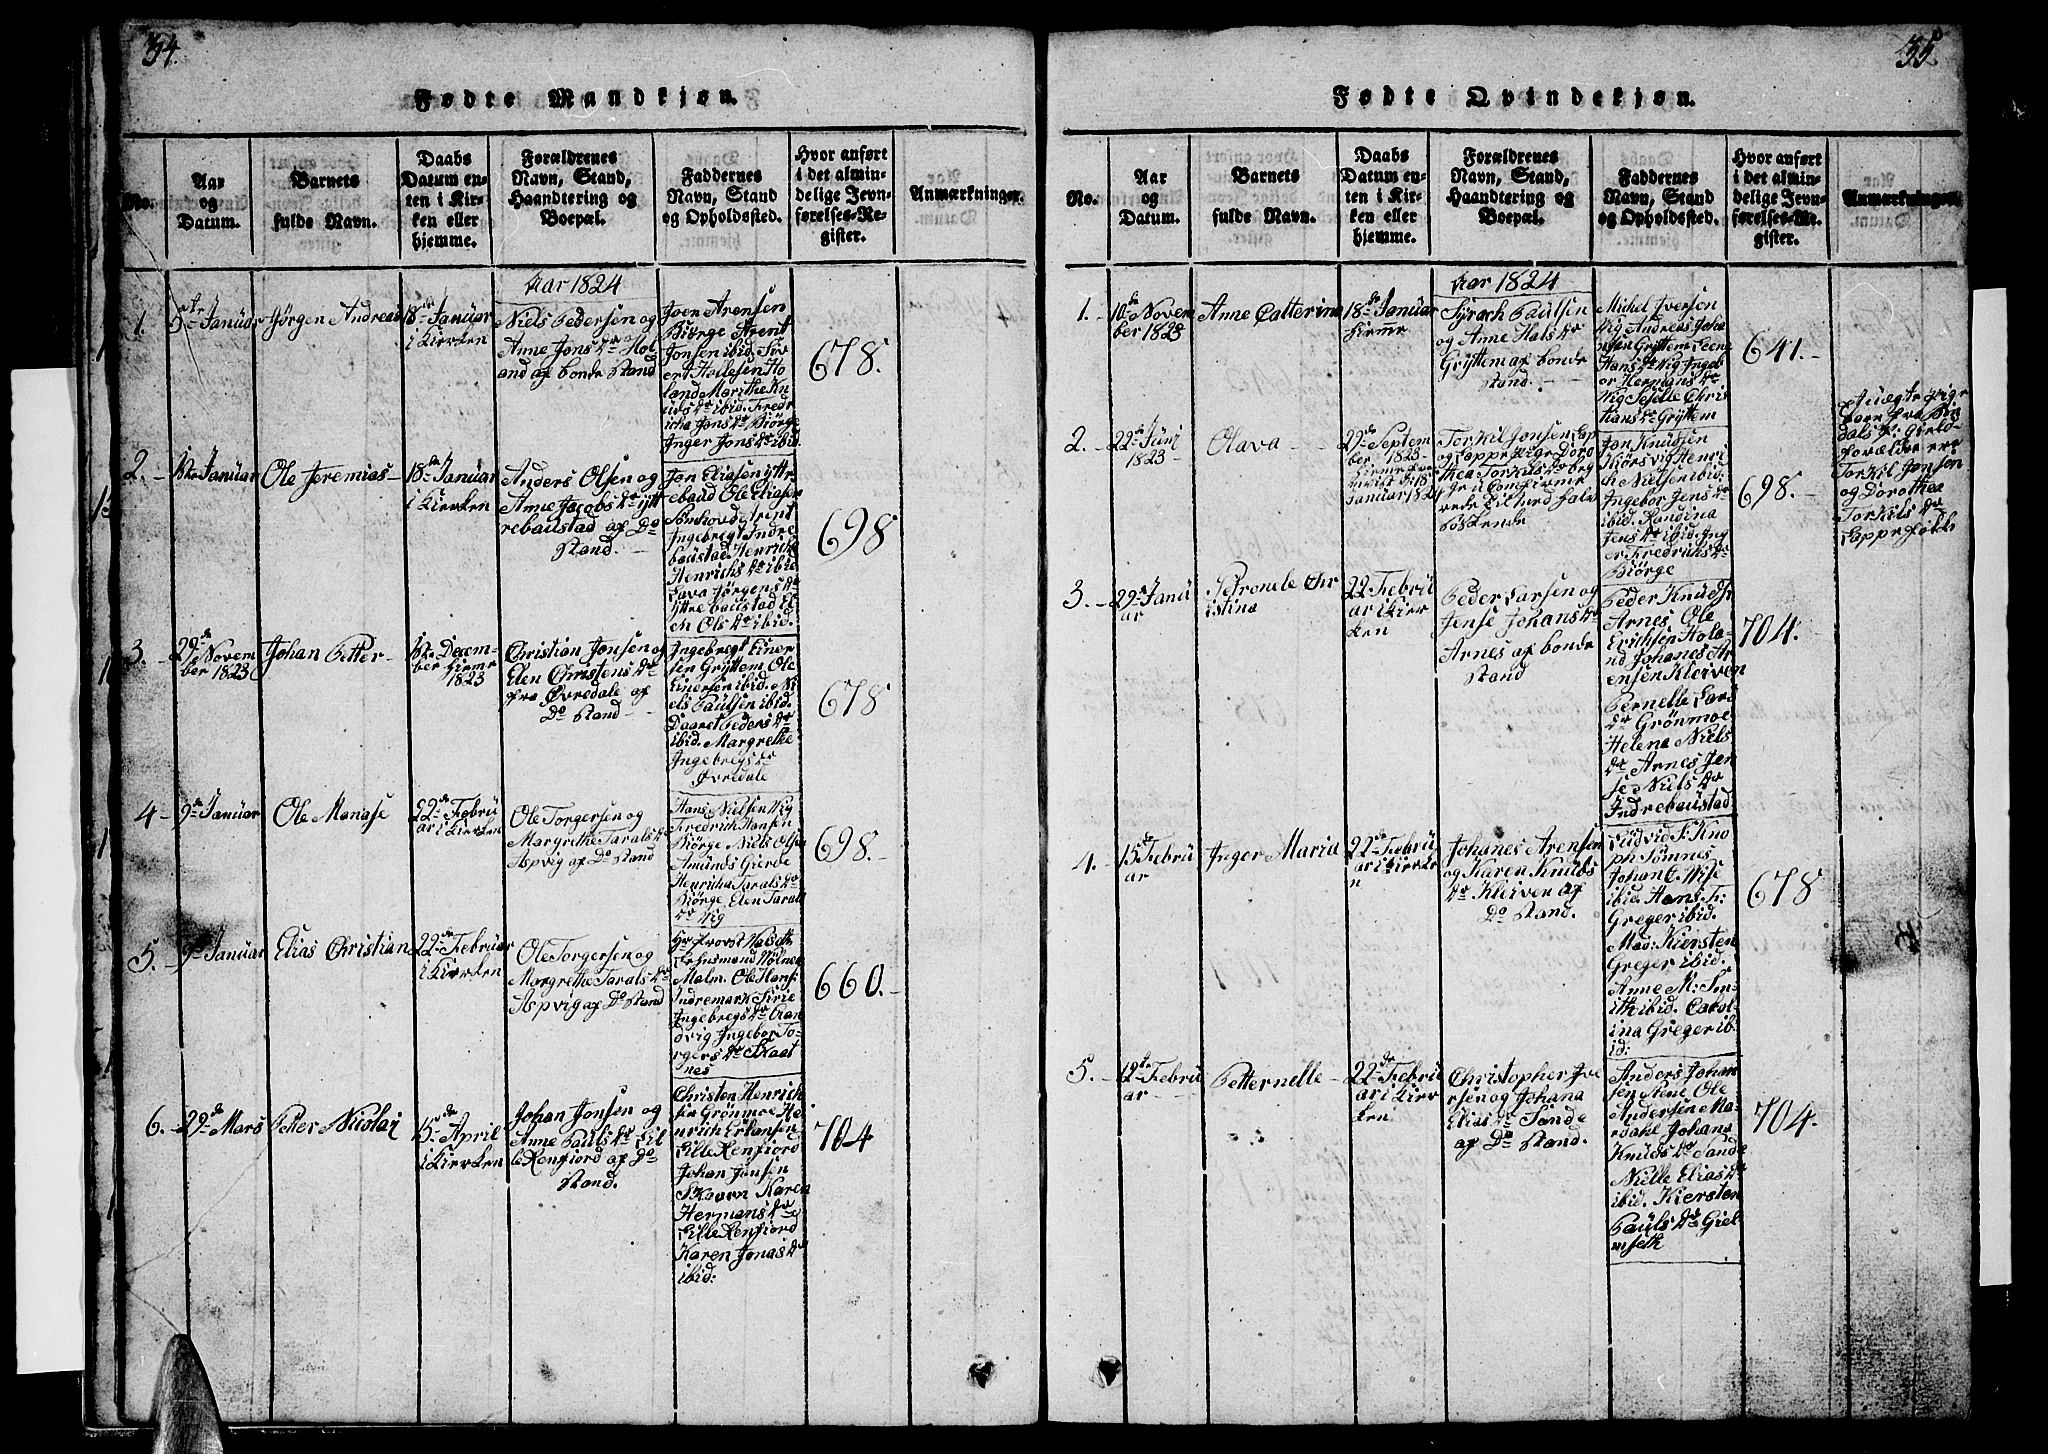 34.
Fødte Mandkjøn.
No.
Aar
og
Datum.
Barnets
fulde Navn.
Daabs
Datum en-
ten i Kir-
ken eller
hjemme.
Forældrenes
Navn, Stand,
Haandtering og
Boepæl.
Faddernes
Navn, Stand
og Opholdssted.
Hvor anført
i det almin-
delige Jevn-
førelses-Re-
gister.
Anmærkninger.
Aar 1824
1.
5te Januar
Jørgen Andreas
18de Januar
i Kirken
Niels Pedersen og
Anne Jons Dr Hol
and af bonde Stand
Joen Arensen
Biørge Arent
Jonsen ibid. Siv
ert Hollesen Ho
land Marithe Kn
uds Dr ibid. Fred
richa Jons Dr Biørge
Inger Jons Dr ibid
678.
2.
Januar
Ole Jeremias
18de Januar
i Kirken
Anders Olsen og
Anne Jacobs Dr Ytt
rebaustad af Do
Stand.
Jon Eliasen Ytt
rebaud Ole Eliasen
Ingebregt Indre
baustad. Henricha
Henrichs Dr ibid
Lava Jørgens Dr
Yttrebaustad El
en Ols Dr ibid.
698
3.
29de Novem
ber 1823
Johan Petter
Decem-
ber hieme
1823
Christian Jonsen og
Elen Christens Dr
fra Øvredale af
Do Stand
Ingebregt Einer
sen Gryttem Ole
Einersen ibid. Ni
els Paulsen ibid.
Daaret Peders Dr
ibid. Margrethe
Ingebregs Dr
Øvredale
678
4
9de Januar
Ole Manase
22de Febru
ar i Kirken
Ole Torgersen og
Margrethe Tarals Dr
Aspvig af Do Stand
Hans Nielsen Wig
Fredrich Hansen
Biørge Niels Olsen
Amunds Gierde
Henricha Tarals Dr
Biørge Elen Taral
Dr Wig
698.
5.
9de Januar
Elias Christian
22de Februar
i Kirken
Ole Torgersen og
Margrethe Tarals Dr
Aspvig af Do Stand
Malm. Ole Hans
Indremark Sirie
Ingebregs Dr Tran
dvig Ingebor To-
rgers Dr Skaat
nes
660.
6.
29de Mars
Petter Nicolai
15de April
i Kirken
Johan Jonsen og
Anne Pauls Dr Lil
le Renfiord af Do
Stand.
Christen Henrich
sen Grønmoe He
nrich Erlansen
Lille Renfiord
Johan Jonsen
Skoarn Karen
Hermans Dr
Lille Renfiord
Karen Jonas Dr
ibid:
704
35.
Fødte Qvindekjøn.
No.
Aar
og
Datum.
Barnets
fulde Navn.
Daabs
Datum en-
ten i Kir-
ken eller
hjemme.
Forældrenes
Navn, Stand,
Haandtering og
Boepæl.
Faddernes
Navn, Stand
og Opholdssted.
Hvor anført
i det almin-
delige Jevn-
førelses-Re-
gister.
Anmærkninger.
Aar 1824
1.
10de Novem
ber 1823
Anne Catterina
18de Januar
hieme
Syrach Paulsen
og Anne Hals Dr
Gryttem af bonde
Stand.
Michel Iversen
Wig Andreas Joha
nsen Gryttem Lene
Hans Dr Wig Ingeb
or Hermans Dr
Wig Seselle Chris
tians Dr Gryttem
641.
2.
22de Juni
1823
Olava
29de Septem
ber 1823
Januar 1824
Torkil Jonsen Lap
og Lappepige Doro
thea Torkils Dr beg
ge i
Jon Knudsen
Kiørsvig Henri
ch Nielsen ibid.
Ingebor Jens Dr
ibid. Randina
Jens Dr ibid. Ing
er Fredrichs Dr
Biørge
698.
forælder ere
Torkil Jonsen
og Dorothea
Torkils Dr
Lappe folk
3.
29de Janu
ar
Petronele Chr
istina
22 Febru
ar i Kirr
ken
Peder Larsen og
Jense Johans Dr
Arnes af bonde
Stand
Peder Knuds:
Arnes Ole
Erichsen Hola
nd Johanes Ar
ensen Kleiven
Pernelle Lars
Dr Grønmoe
Helena Niels
Dr Arnes Jen
se Niels Dr
Indrebaustad
704.
4.
15de Febru
ar
Inger Maria
22de Febru
ar i Kirke
n
Johanes Arensen
og Karen Knuds
Dr Kleiven af
Do Stand.
Ludvid S: Kno
ph Tømnes
Johan C. Wise
ibid. Hans F:
Greger ibid.
Mad: Kiersten
Greger ibid.
Anne M: Sm
ith ibid. Carol
ina Greger ib
id:
678
5.
12te Febru
ar
Petternelle
22de Febru
ar i Kirr
ken
Christopher Ive
rsen og Johana
Elias Dr Sande
af Do Stand.
Anders Johan
sen Nene Ole
Andersen Ma-
rdahl Johana
Knuds Dr Sande
Nielle Elias Dr
ibid. Kiersten
Pauls Dr Giel
mseth
704.